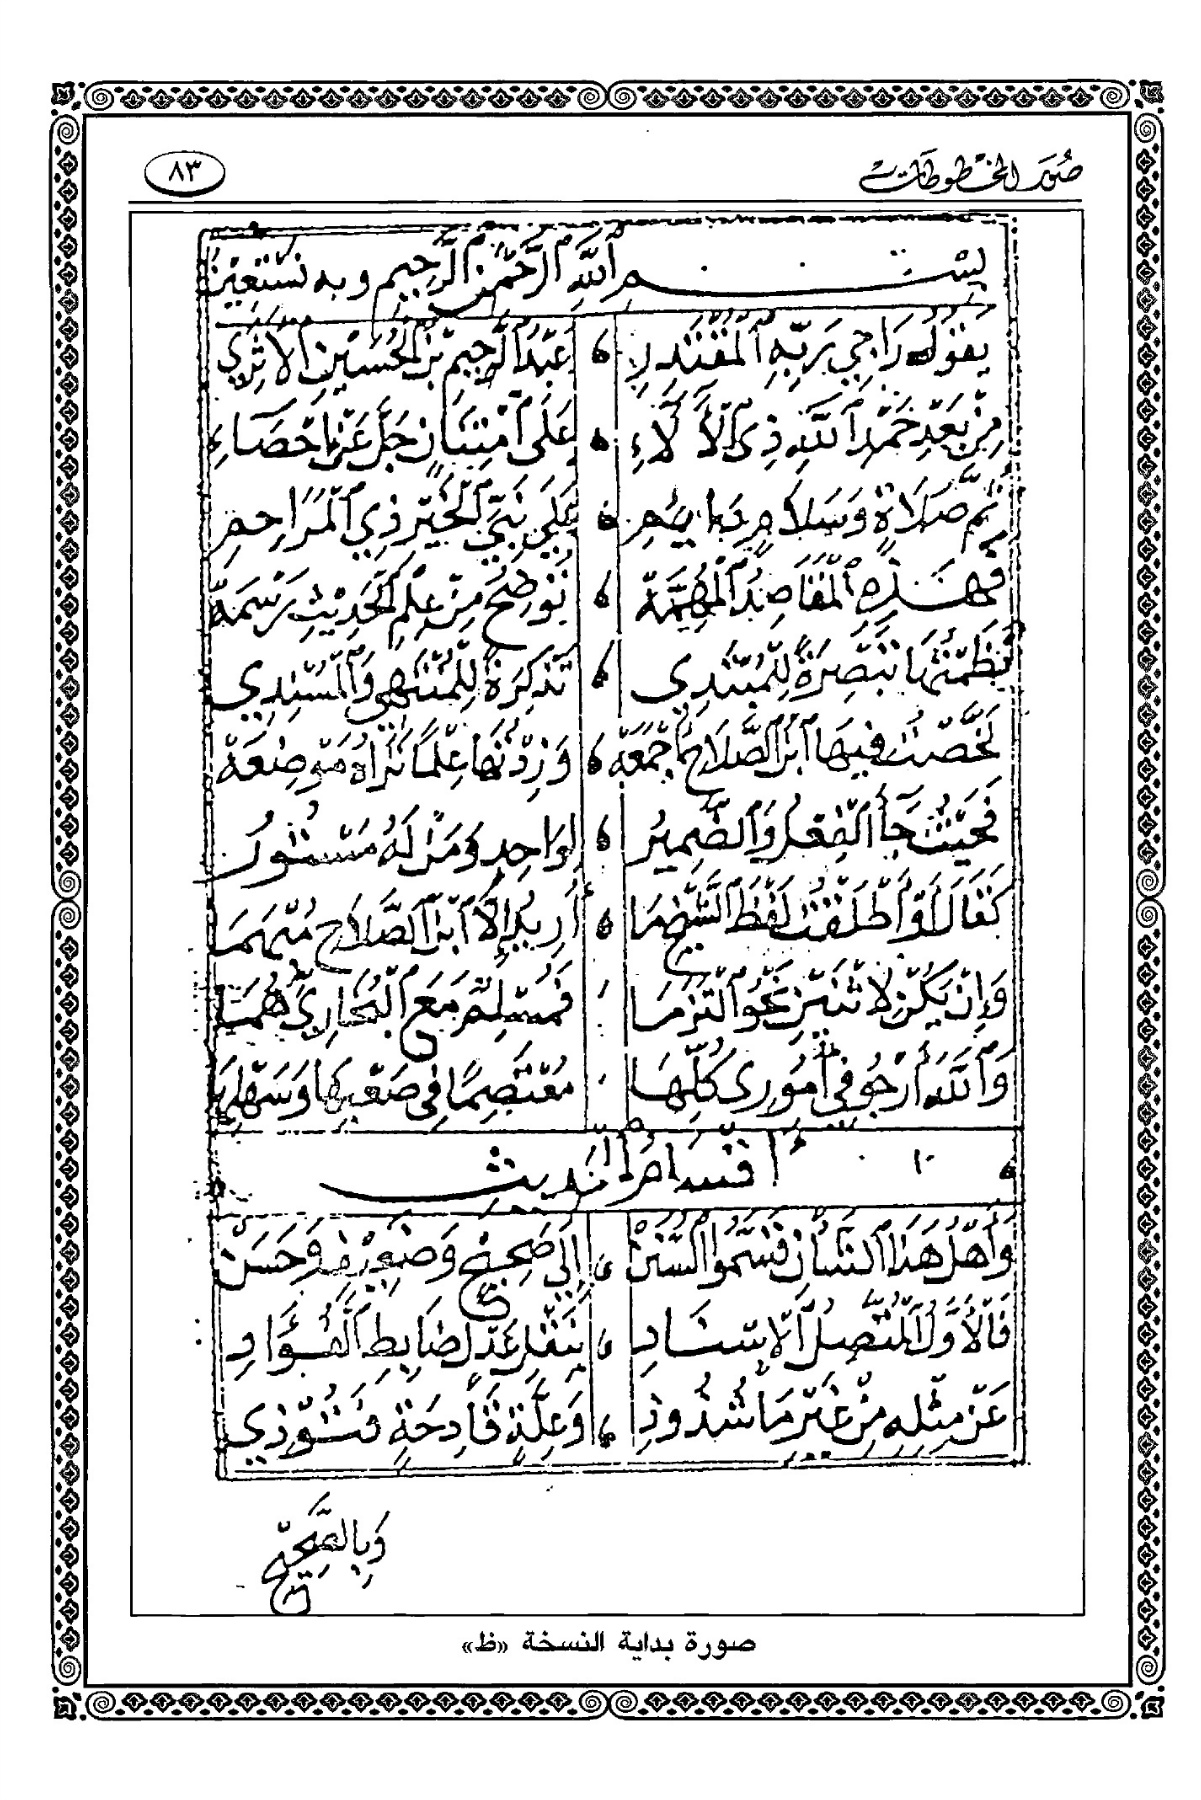 صور المخطوطات
٨٣
بسم الله الرحمن الرحيم وبه نستعين
يَقُولُ رَاجِي رَبِّهِ المُقْتَدِرِ عَبْدُ الرَّحِيمِ بْنُ الحُسَيْنِ الأَثَرِي
مِنْ بَعْدِ حَمْدِ اللَّهِ ذِي الآلَاءِ عَلَى امْتِنَانٍ جَلَّ عَنْ إِحْصَاءِ
ثُمَّ صَلَاةٍ وَسَلَامٍ دَايِمِ عَلَى نَبِيِّ الخَيْرِ ذِي المَرَاحِمِ
فَهَذِهِ المَقَاصِدُ المُهِمَّهْ تُوضِحُ مِنْ عِلْمِ الحَدِيثِ رَسْمَهْ
نَظَمْتُهَا تَبْصِرَةً لِلْمُبْتَدِي تَذْكِرَةً لِلْمُنْتَهِي وَالمُسْنِدِي
لَخَّصْتُ فِيهَا ابْنَ الصَّلَاحِ أَجْمَعَهْ وَزِدْتُهَا عِلْمًا تَرَاهُ مَوْضِعَهْ
فَحَيْثُ جَاءَ الفِعْلُ وَالضَّمِيرُ لِوَاحِدٍ وَمَنْ لَهُ مَسْتُورُ
كَقَالَ أَوْ أَطْلَقْتُ لَفْظَ الشَّيْخِ مَا أُرِيدُ إِلَّا ابْنَ الصَّلَاحِ مُبْهَمَا
وَإِنْ يَكُنْ لِاثْنَيْنِ نَحْوُ التَزَمَا فَمُسْلِمٌ مَعَ البُخَارِيِّ هُمَا
وَاللَّهَ أَرْجُو فِي أُمُورِي كُلِّهَا مُعْتَصِمًا فِي صَعْبِهَا وَسَهْلِهَا
١٠ أقسام الحديث
وَأَهْلُ هَذَا الشَّأْنِ قَسَّمُوا السُّنَنْ إِلَى صَحِيحٍ وَضَعِيفٍ وَحَسَنْ
فَالأَوَّلُ المُتَّصِلُ الإِسْنَادِ بِنَقْلِ عَدْلٍ ضَابِطِ الفُؤَادِ
عَنْ مِثْلِهِ مِنْ غَيْرِ مَا شُذُوذِ وَعِلَّةٍ قَادِحَةٍ فَتُوذِي
وَبِالصَّحِيحِ
صورة بداية النسخة «ظ»